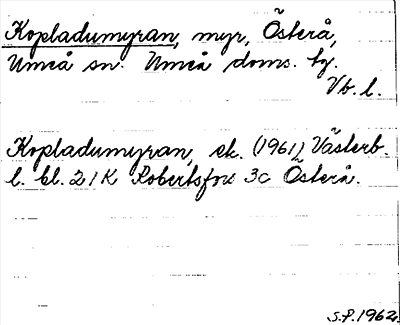 Kopladumyran, myr, Österå,
Umeå sn. Umeå doms. tg.
Vb. l.
Kopladumyran, ek. (1961) Västerb.
l. bl. 21K Robertsfors 3c Österå.
S.P. 1962.